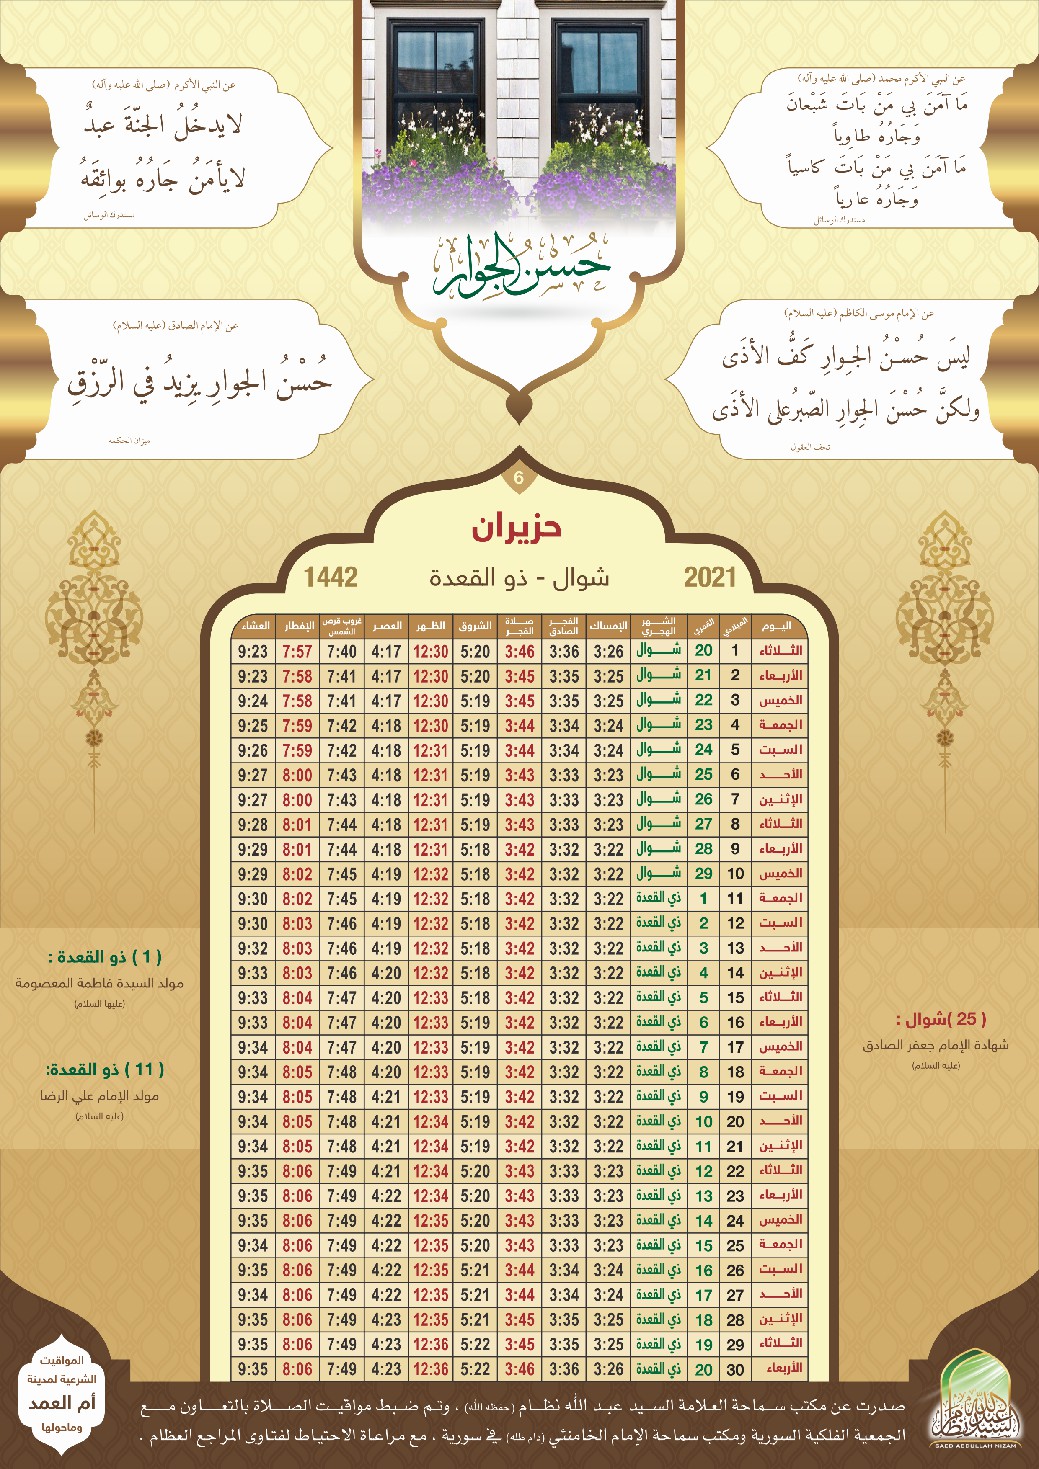 عن النبي الأكرم محمد (صلى الله عليه وآله)
مَا آمَنَ بي مَنْ بَاتَ شَبْعانَ
وَجَارُهُ طاوِياً
مَا آمَنَ بي مَنْ بَاتَ كاسياً
وَجَارُهُ عارِياً
مستدرك الوسائل
عن النبي الأكرم (صلى الله عليه وآله)
لايدخُلُ الجنّةَ عبدٌ
لايأمَنُ جَارُهُ بوائِقَهُ
مستدرك الوسائل
حُسنُ الجِوار
عن الإمام موسى الكاظم (عليه السلام)
ليسَ حُسْنُ الجِوارِ كَفُّ الأذَى
ولكنَّ حُسْنَ الجِوارِ الصّبرُ على الأذَى
تحف العقول
عن الإمام الصادق (عليه السلام)
حُسْنُ الجِوارِ يزيدُ في الرّزْقِ
ميزان الحكمة
6
حزيران
2021 شوال - ذو القعدة 1442
اليوم الميلادي القمري الشهر الهجري الإمساك الفجر الصادق صلاة الفجر الشروق الظهر العصر غروب قرص الشمس الإفطار العشاء
الثلاثاء 1 20 شوال 3:26 3:36 3:46 5:20 12:30 4:17 7:40 7:57 9:23
الأربعاء 2 21 شوال 3:25 3:35 3:45 5:20 12:30 4:17 7:41 7:58 9:23
الخميس 3 22 شوال 3:25 3:35 3:45 5:19 12:30 4:17 7:41 7:58 9:24
الجمعة 4 23 شوال 3:24 3:34 3:44 5:19 12:30 4:18 7:42 7:59 9:25
السبت 5 24 شوال 3:24 3:34 3:44 5:19 12:31 4:18 7:42 7:59 9:26
الأحد 6 25 شوال 3:23 3:33 3:43 5:19 12:31 4:18 7:43 8:00 9:27
الإثنين 7 26 شوال 3:23 3:33 3:43 5:19 12:31 4:18 7:43 8:00 9:27
الثلاثاء 8 27 شوال 3:23 3:33 3:43 5:19 12:31 4:18 7:44 8:01 9:28
الأربعاء 9 28 شوال 3:22 3:32 3:42 5:18 12:31 4:18 7:44 8:01 9:29
الخميس 10 29 شوال 3:22 3:32 3:42 5:18 12:31 4:19 7:45 8:02 9:29
الجمعة 11 1 ذي القعدة 3:22 3:32 3:42 5:18 12:32 4:19 7:45 8:02 9:30
السبت 12 2 ذي القعدة 3:22 3:32 3:42 5:18 12:32 4:19 7:46 8:03 9:30
الأحد 13 3 ذي القعدة 3:22 3:32 3:42 5:18 12:32 4:19 7:46 8:03 9:32
الإثنين 14 4 ذي القعدة 3:22 3:32 3:42 5:18 12:32 4:20 7:46 8:03 9:33
الثلاثاء 15 5 ذي القعدة 3:22 3:32 3:42 5:18 12:33 4:20 7:47 8:04 9:33
الأربعاء 16 6 ذي القعدة 3:22 3:32 3:42 5:19 12:33 4:20 7:47 8:04 9:33
الخميس 17 7 ذي القعدة 3:22 3:32 3:42 5:19 12:33 4:20 7:47 8:04 9:34
الجمعة 18 8 ذي القعدة 3:22 3:32 3:42 5:19 12:33 4:20 7:48 8:05 9:34
السبت 19 9 ذي القعدة 3:22 3:32 3:42 5:19 12:33 4:21 7:48 8:05 9:34
الأحد 20 10 ذي القعدة 3:22 3:32 3:42 5:19 12:34 4:21 7:48 8:05 9:34
الإثنين 21 11 ذي القعدة 3:22 3:32 3:42 5:19 12:34 4:21 7:48 8:05 9:34
الثلاثاء 22 12 ذي القعدة 3:23 3:33 3:43 5:20 12:34 4:21 7:49 8:06 9:35
الأربعاء 23 13 ذي القعدة 3:23 3:33 3:43 5:20 12:34 4:22 7:49 8:06 9:35
الخميس 24 14 ذي القعدة 3:23 3:33 3:43 5:20 12:35 4:22 7:49 8:06 9:35
الجمعة 25 15 ذي القعدة 3:23 3:33 3:43 5:20 12:35 4:22 7:49 8:06 9:34
السبت 26 16 ذي القعدة 3:24 3:34 3:44 5:21 12:35 4:22 7:49 8:06 9:35
الأحد 27 17 ذي القعدة 3:24 3:34 3:44 5:21 12:35 4:22 7:49 8:06 9:34
الإثنين 28 18 ذي القعدة 3:25 3:35 3:45 5:21 12:35 4:23 7:49 8:06 9:35
الثلاثاء 29 19 ذي القعدة 3:25 3:35 3:45 5:22 12:36 4:23 7:49 8:06 9:35
الأربعاء 30 20 ذي القعدة 3:26 3:36 3:46 5:22 12:36 4:23 7:49 8:06 9:35
( 25 )شوال :
شهادة الإمام جعفر الصادق
(عليه السلام)
( 1 ) ذو القعدة :
مولد السيدة فاطمة المعصومة
(عليها السلام)
( 11 ) ذو القعدة:
مولد الإمام علي الرضا
(عليه السلام)
صدرت عن مكتب سماحة العلامة السيد عبد الله نظام (حفظه الله) ، وتم ضبط مواقيت الصلاة بالتعاون مع
الجمعية الفلكية السورية ومكتب سماحة الإمام الخامنئي (دام ظله) في سورية ، مع مراعاة الاحتياط لفتاوى المراجع العظام .
المواقيت
الشرعية لمدينة
أم العمد
وماحولها
السيد عبد الله نظام
SAED ABDULLAH NIZAM